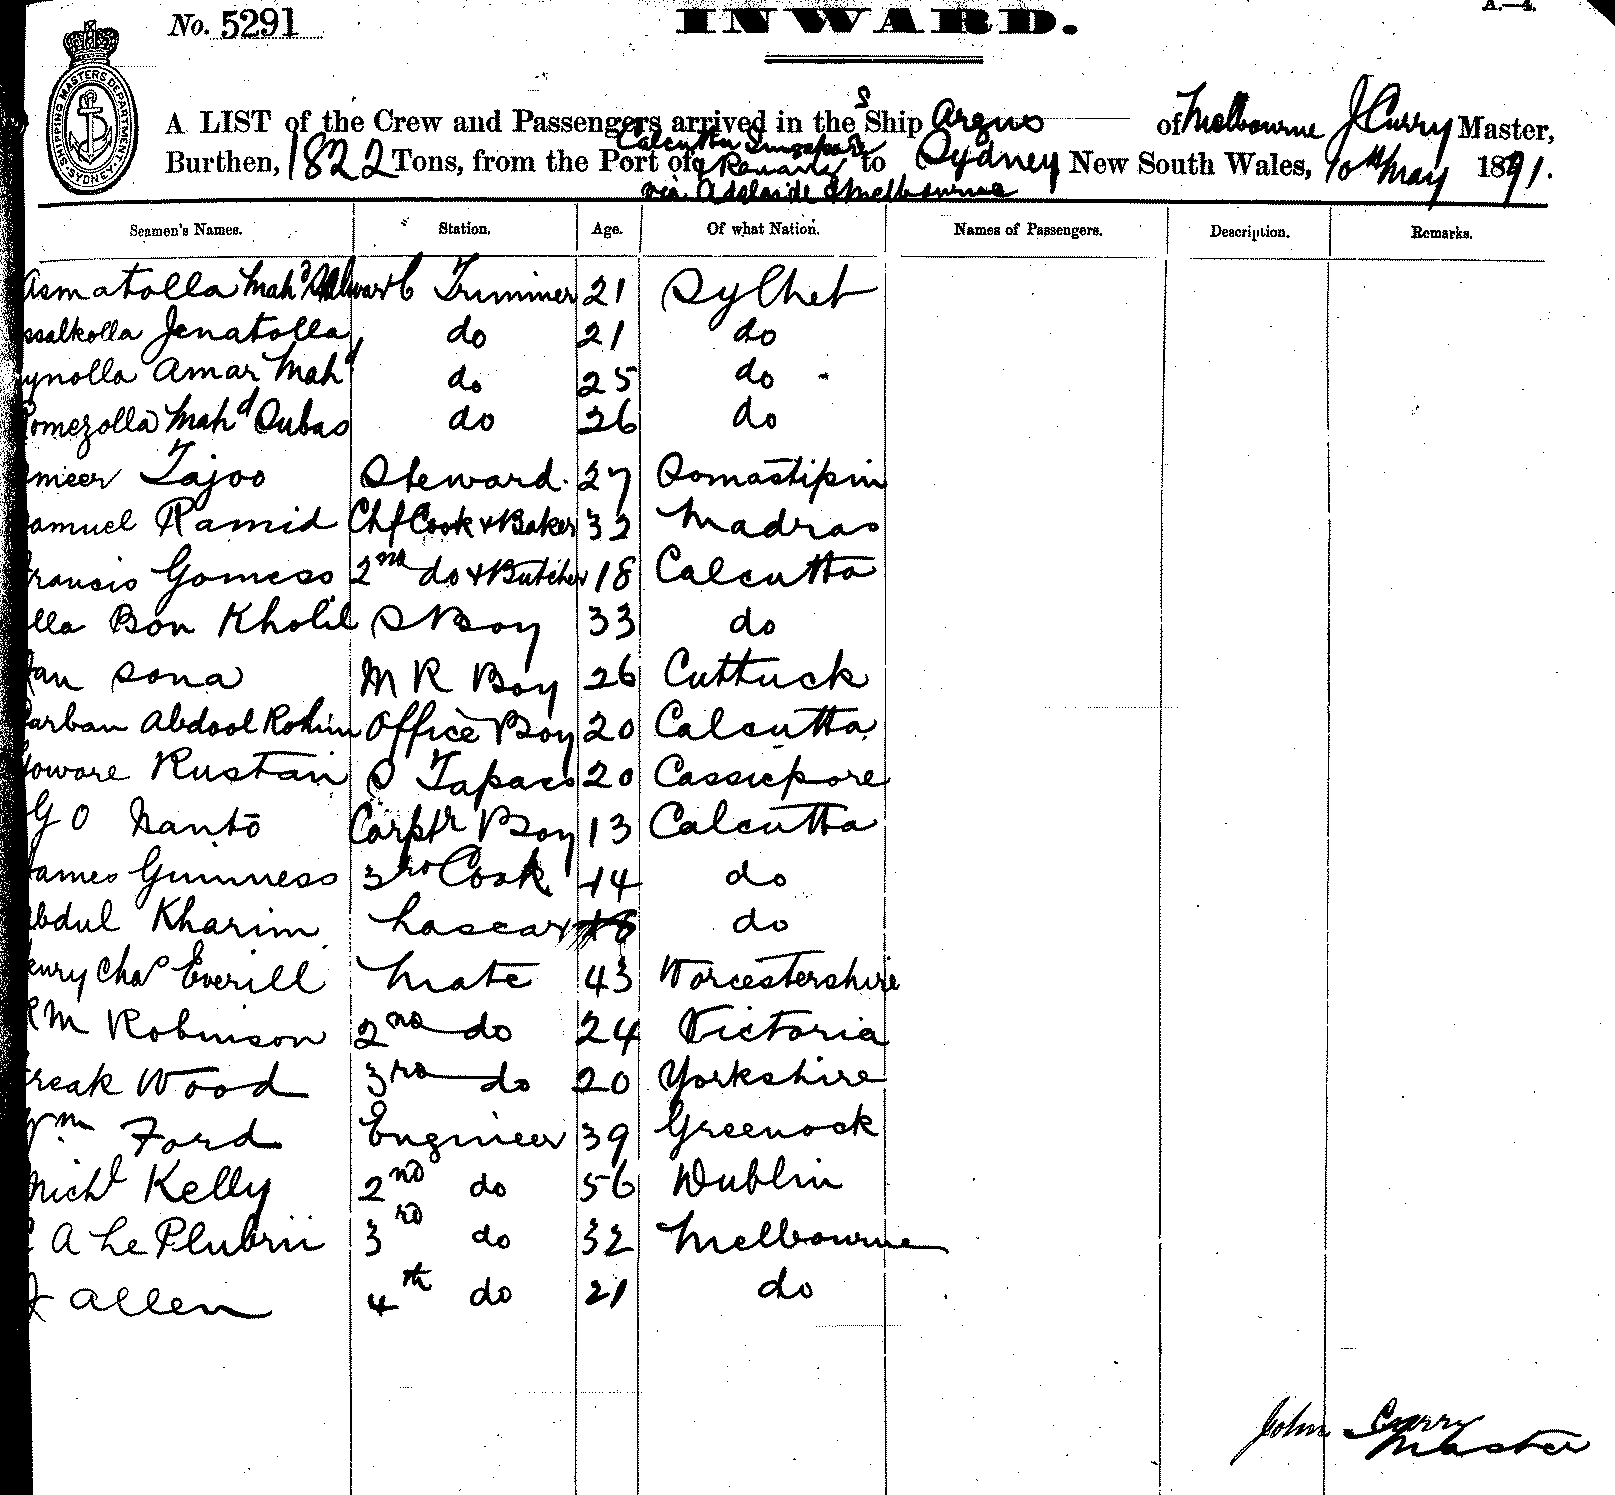 A.—4.
No. 5291
INWARD.
SHIPPING MASTERS DEPARTMENT. SYDNEY.
A LIST of the Crew and Passengers arrived in the S Ship Argus of Melbourne J Curry Master,
Calcutta Singapore
Burthen, 1822 Tons, from the Port of & to Sydney New South Wales, 10th May 1891.
via Adelaide & Melbourne
Seamen's Names. Station. Age. Of what Nation. Names of Passengers. Description. Remarks.
Asmatolla Mahd C Trimmer 21 Sylhet
Jenatolla do 21 do
ynolla Amar Mahd do 25 do
Romezolla Mahd Dubas do 26 do
meer Tajoo Steward 27
amuel Ramid Chf Cook & Baker 32 Madras
Francis Gomess 2nd do & Butcher 18 Calcutta
lla Bon Kholil S Boy 33 do
Jan Sona M R Boy 26 Cuttuck
arban Abdool Rohim Office Boy 20 Calcutta
oware Rustan S Tapass 20 Cassicpore
G O Nanto Carptr Boy 13 Calcutta
James Guinness 3rd Cook 14 do
Abdul Kharim Lascar 18 do
enry Chas Everill Mate 43 Worcestershire
R M Robinson 2nd do 24 Victoria
reak Wood 3rd do 20 Yorkshire
Wm Ford Engineer 39 Greenock
Michl Kelly 2nd do 56 Dublin
A Le Plubrii 3rd do 32 Melbourne
J Allen 4th do 21 do
John Curry
Master